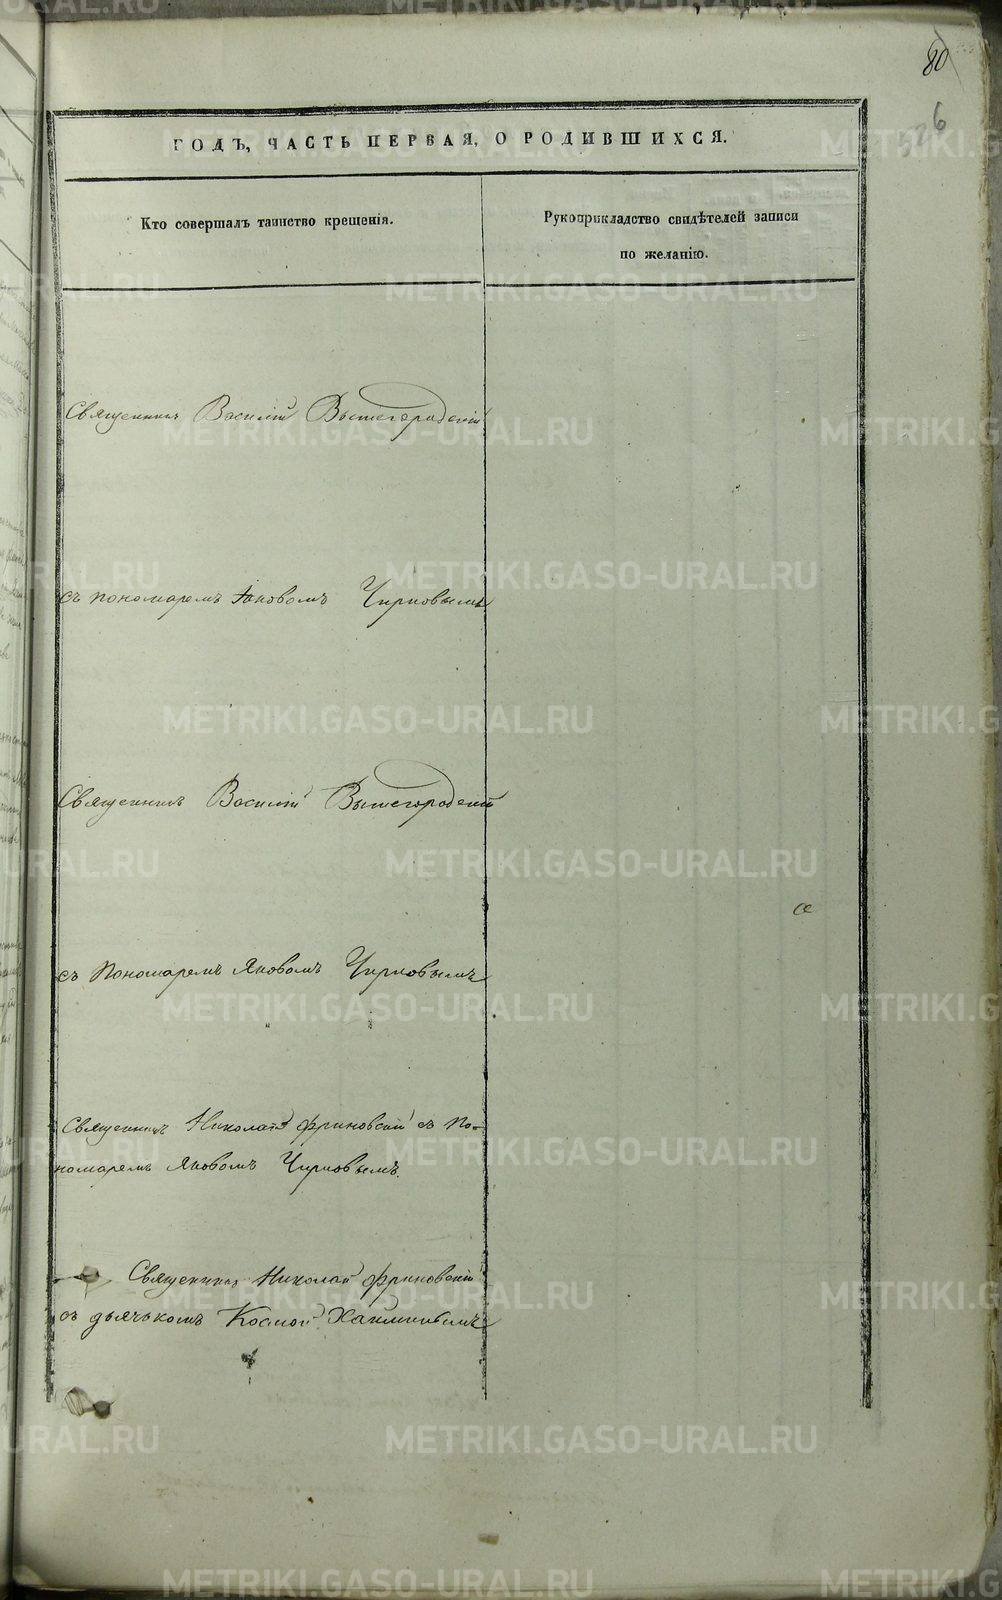 80
526
ГОДЪ, ЧАСТЬ ПЕРВАЯ, О РОДИВШИХСЯ.
Кто совершалъ таинство крещенія.
Рукоприкладство свидѣтелей записи
по желанію.
Священникъ Василій Вышегородскій
съ пономаремъ Яковомъ Чирковымъ
Священникъ Василій Вышегородскій
съ Пономаремъ Яковомъ Чирковымъ
Священникъ Николай Фриновскій съ По-
номаремъ Яковомъ Чирковымъ.
Священникъ Николай Фриновскій
съ дьячькомъ Космой
METRIKI.GASO-URAL.RU